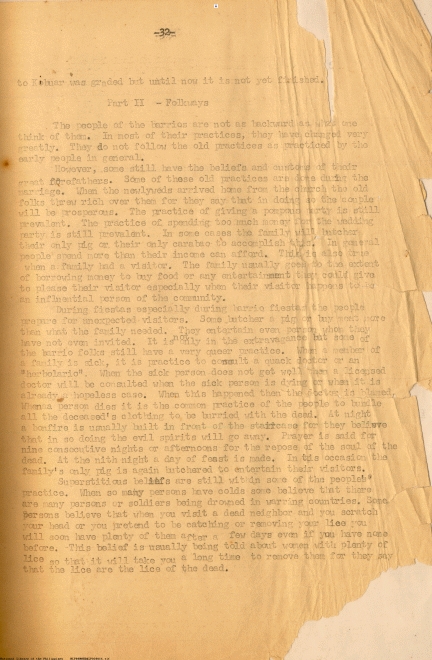 -32-
to Kahuar was graded but until now it is not yet finished.
Part II - Folkways
The people of the barrios are not as backward as what one
think of them. In most of their practices, they have changed very
greatly. They do not follow the old practices as practiced by the
early people in general.
However, some still have the beliefs and customs of their
great forefathers. Some of these old practices are done during the
marriage. When the newlyweds arrived home from the church the old
folks threw rice over them for they say that in doing so the couple
will be prosperous. The practice of giving a pompous party is still
prevalent. The practice of spending too much money for the wedding
party is still prevalent. In some cases the family will butcher
their only pig or their only carabao to accomplish this. In general
people spend more than their income can afford. This is also true
when a family had a visitor. The family usually goes to the extent
of borrowing money to buy food or any entertainment they could give
to please their visitor especially when their visitor happens to be
an influential person of the community.
During fiestas especially during barrio fiestas the people
prepare for unexpected visitors. Some butcher a pig or buy meat more
than what the family needed. They entertain even person whom they
have not even invited. It is not only in the extravagance but some of
the barrio folks still have a very queer practice. When a member of
a family is sick, it is practice to consult a quack doctor or an
"herbolario". When the sick person does not get well then a licensed
doctor will be consulted when the sick person is dying or when it is
already a hopeless case. When this happened then the doctor is blamed.
When a person dies it is the common practice of the people to bundle
all the deceased's clothing to be buried with the dead. At night
a bonfire is usually built in front of the staircase for they believe
that in so doing the evil spirits will go away. Prayer is said for
nine consecutive nights or afternoons for the repose of the soul of the
dead. At the ninth night a day of feast is made. In this occasion the
family's only pig is again butchered to entertain their visitors.
Superstitious beliefs are still within some of the peoples'
practice. When so many persons have colds some believe that there
are many persons or soldiers being drowned in warring countries. Some
persons believe that when you visit a dead neighbor and you scratch
your head or you pretend to be catching or removing your lice you
will soon have plenty of them after a few days even if you have none
before. This belief is usually being told about women with plenty of
lice so that it will take you a long time to remove them for they say
that the lice are the lice of the dead.